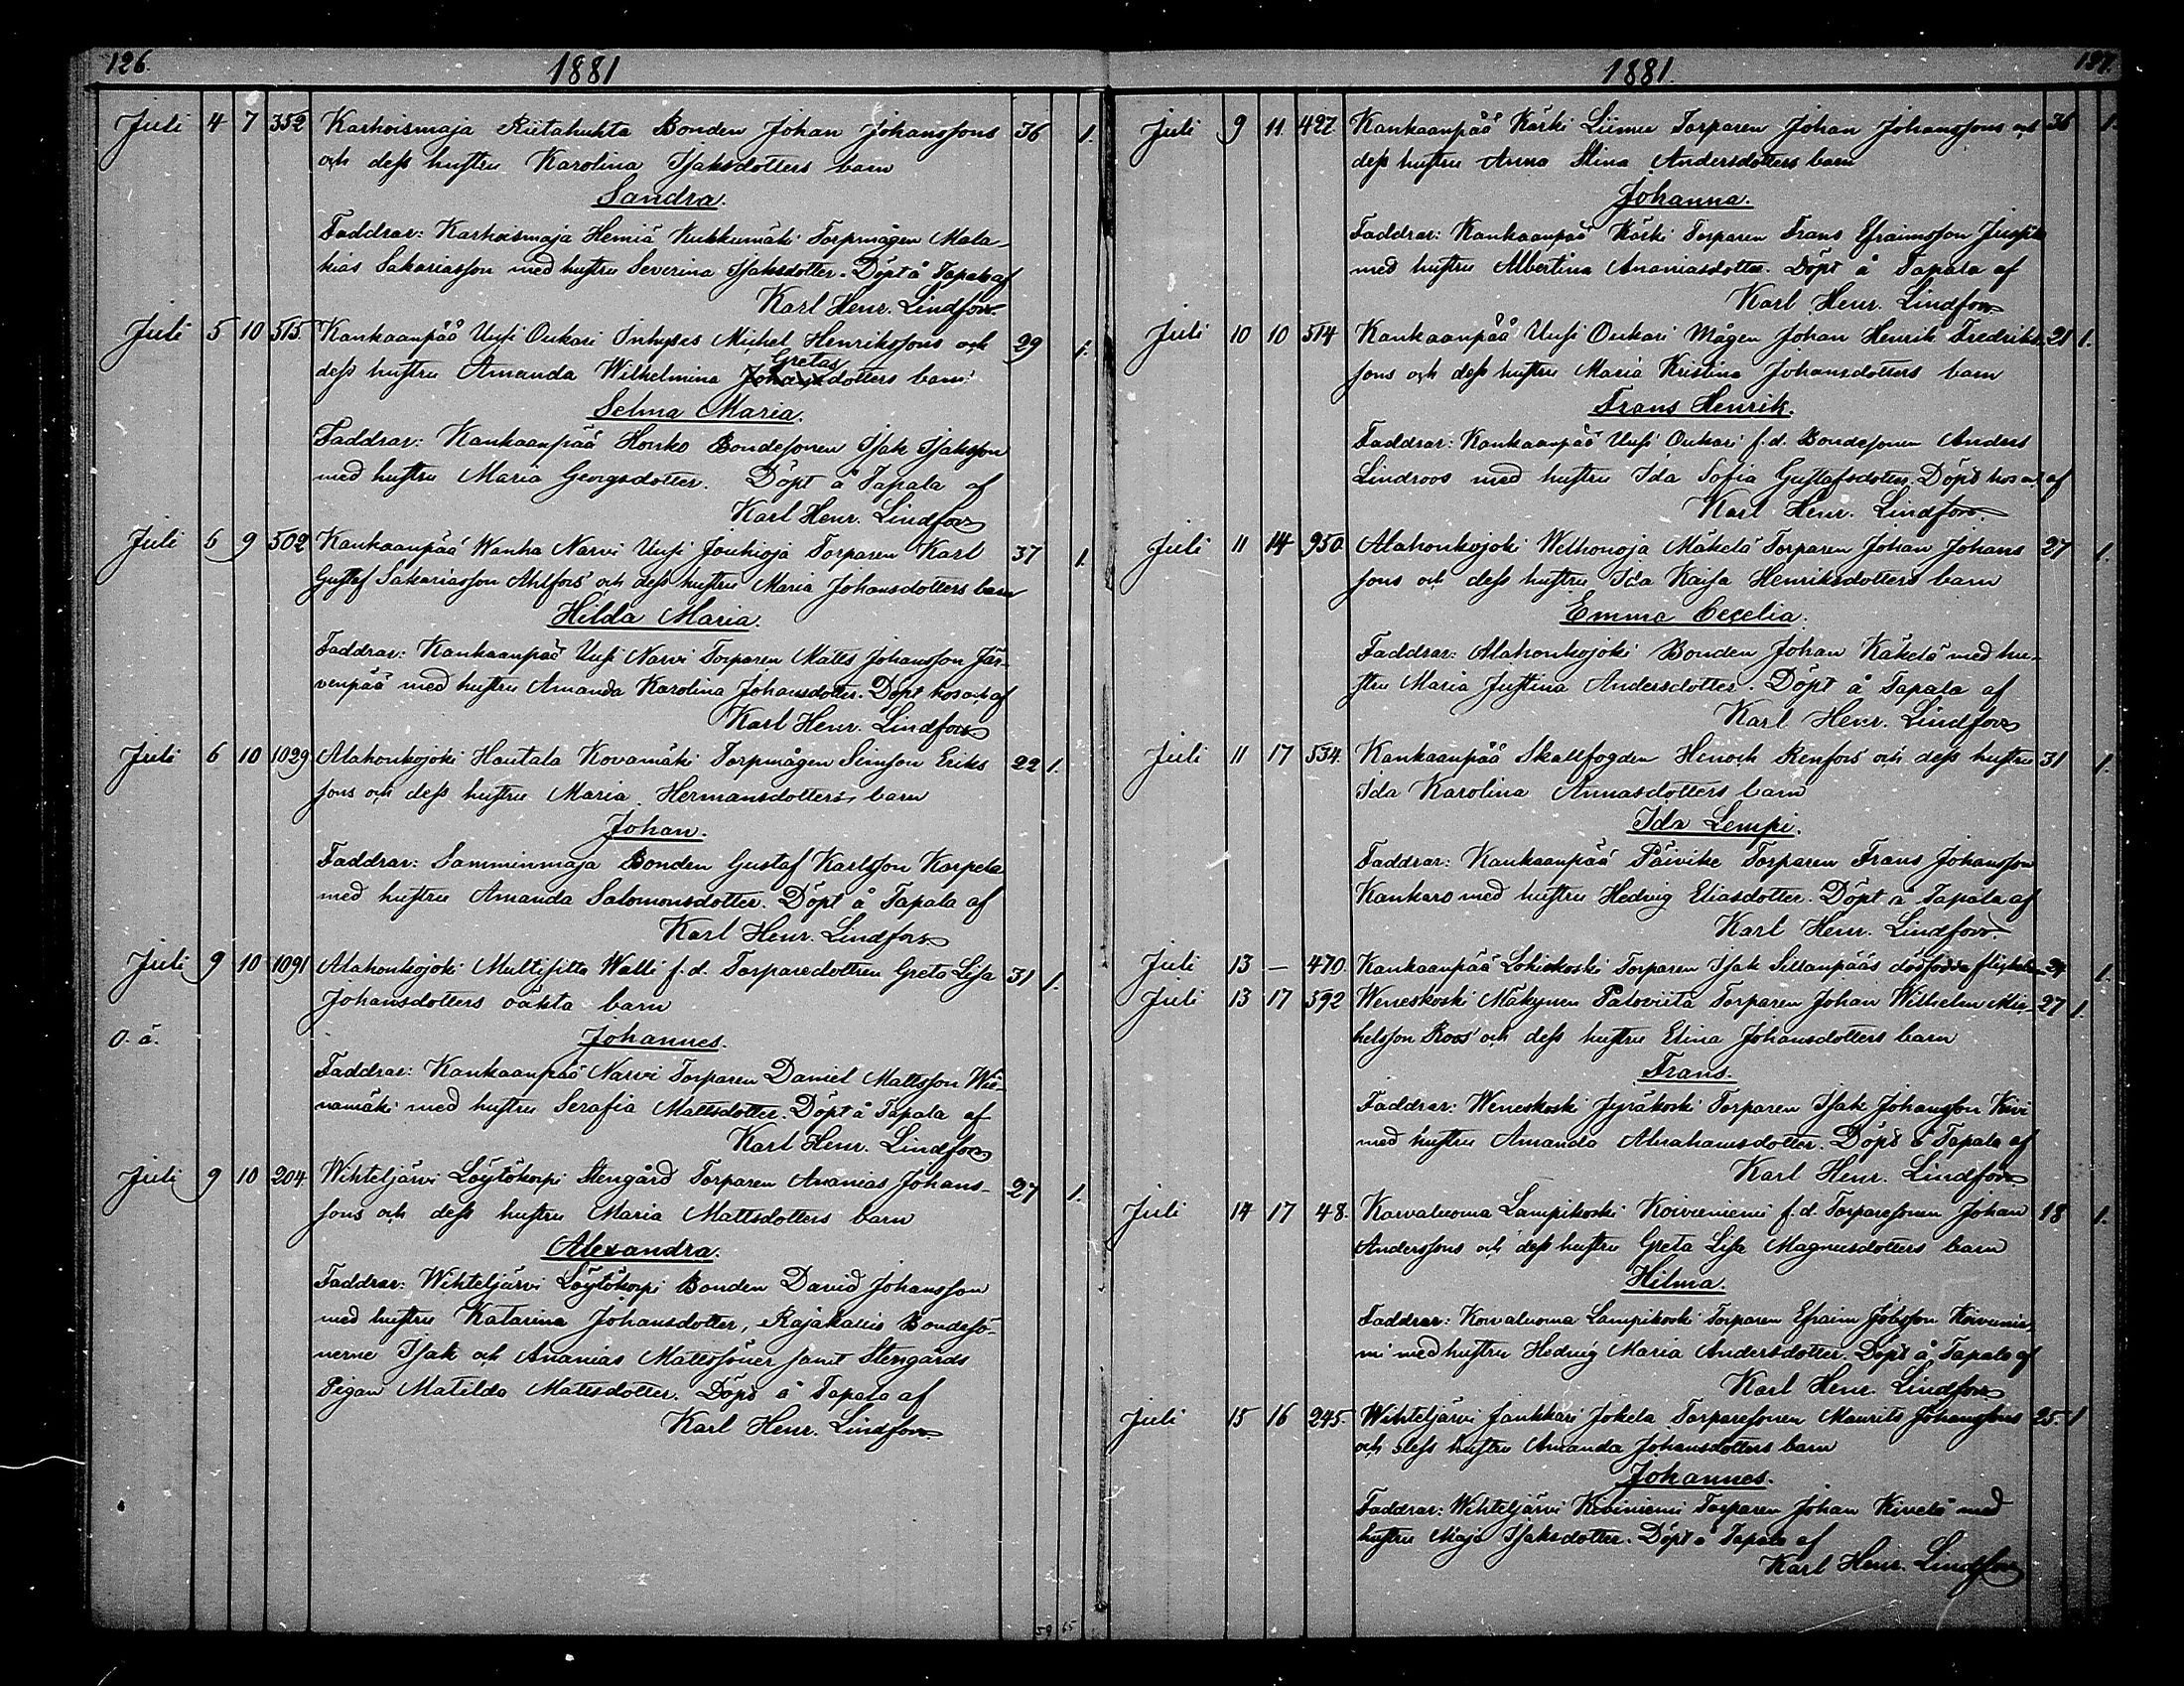 126.
1881
Juli 4 7 352 Karhoismaja Riitahuhta Bonden Johan Johanssons 36 1.
och dess hustru Karolina Isaksdotters barn
Sandra.
Faddrar: Karhoismaja Hemiä Kukkumäki Torpmågen Mala-
kias Sakariasson med hustru Severina Isaksdotter. Döpt å Tapala af
Karl Henr. Lindfors
Juli 5 10 515. Kankaanpää Uusi Oukari Inhyses Michel Henrikssons och 29 1.
Gretas
dess hustru Amanda Wilhelmina Johansdotters barn
Selma Maria.
Faddrar: Kankaanpää Honko Bondesonen Isak Isaksson
med hustru Maria Georgsdotter. Döpt å Tapala af
Karl Henr. Lindfors
Juli 6 9 502 Kankaanpää Wanha Narvi Uusi Jouhioja Torparen Karl 37 1.
Gustaf Sakariasson Ahlfors och dess hustru Maria Johansdotters barn
Hilda Maria.
Faddrar: Kankaanpää Uusi Narvi Torparen Matts Johansson Jär-
venpää med hustru Amanda Karolina Johansdotter. Döpt hos och af
Karl Henr. Lindfors
Juli 6 10 1029 Alahonkojoki Hautala Kovamäki Torpmågen Simson Eriks 22 1.
sons och dess hustru Maria Hermansdotters barn
Johan.
Faddrar: Samminmaja Bonden Gustaf Karlsson Korpela
med hustru Amanda Salomonsdotter. Döpt å Tapala af
Karl Henr. Lindfors
Juli 9 10 1091 Alahonkojoki Multisilta Walli f.d. Torparedottren Greta Lisa 31 1.
Johansdotters oäkta barn
O. ä.
Johannes.
Faddrar: Kankaanpää Narvi Torparen Daniel Mattsson Wii-
namäki med hustru Serafia Mattsdotter. Döpt å Tapala af
Karl Henr. Lindfors
Juli 9 10 204 Wihteljärvi Löytökorpi Stengård Torparen Ananias Johans- 27 1.
sons och dess hustru Maria Mattsdotters barn
Alexandra.
Faddrar: Wihteljärvi Löytökorpi Bonden David Johansson
med hustru Katarina Johansdotter, Rajakallio Bondesö-
nerne Isak och Ananias Mattssöner samt Stengårds
Pigan Matilda Mattsdotter. Döpt å Tapala af
Karl Henr. Lindfors.
59 65
127.
1881.
Juli 9 11 427 Kankaanpää Kärki Liimu Torparen Johan Johanssons och 36 1.
dess hustru Anna Stina Andersdotters barn
Johanna.
Faddrar: Kankaanpää Kärki Torparen Frans Efraimsson
med hustru Albertina Ananiasdotter. Döpt å Tapala af
Karl Henr. Lindfors
Juli 10 10 514 Kankaanpää Uusi Oukari Mågen Johan Henrik Fredriks 21 1.
sons och dess hustru Maria Kristina Johansdotters barn
Frans Henrik.
Faddrar: Kankaanpää Uusi Oukari f.d. Bondesonen Anders
Lindroos med hustru Ida Sofia Gustafsdotter. Döpt hos och af
Karl Henr. Lindfors.
Juli 11 14 950. Alahonkojoki Welhonoja Mäkelä Torparen Johan Johans 27 1.
sons och dess hustru Ida Kaisa Henriksdotters barn
Emma Cecelia.
Faddrar: Alahonkojoki Bonden Johan Käkelä med hu-
stru Maria Justina Andersdotter. Döpt å Tapala af
Karl Henr. Lindfors
Juli 11 17 534. Kankaanpää Skallfogden Henoch Renfors och dess hustru 31 1.
Ida Karolina Annasdotters barn
Ida Lempi.
Faddrar: Kankaanpää Päivike Torparen Frans Johansson
Kankare med hustru Hedvig Eliasdotter. Döpt å Tapala af
Karl Henr. Lindfors.
Juli 13 — 470. Kankaanpää Lohikoski Torparen Isak Sillanpääs dödfödda flickebarn 24 1.
Juli 13 17 592 Weneskoski Mäkynen Paloviita Torparen Johan Wilhelm Mic- 27 1.
helsson Roos och dess hustru Elina Johansdotters barn
Frans.
Faddrar: Weneskoski Jyräkoski Torparen Isak Johansson Kivi
med hustru Amanda Abrahamsdotter. Döpt å Tapala af
Karl Henr. Lindfors
Juli 14 17 48. Karvaluoma Lampikoski Koivuniemi f.d. Torparesonen Johan 18 1.
Anderssons och dess hustru Greta Lisa Magnusdotters barn
Hilma.
Faddrar: Karvaluoma Lampikoski Torparen Efraim Jobsson Koivunie-
mi med hustru Hedvig Maria Andersdotter. Döpt å Tapala af
Karl Henr. Lindfors
Juli 15 16 245. Wihteljärvi Jankkari Jokela Torparesonen Maurits Johanssons 25. 1
och dess hustru Amanda Johansdotters barn
Johannes.
Faddrar: Wihteljärvi Koiviniemi Torparen Johan Kivelä med
hustru Maja Isaksdotter. Döpt å Tapala af
Karl Henr. Lindfors